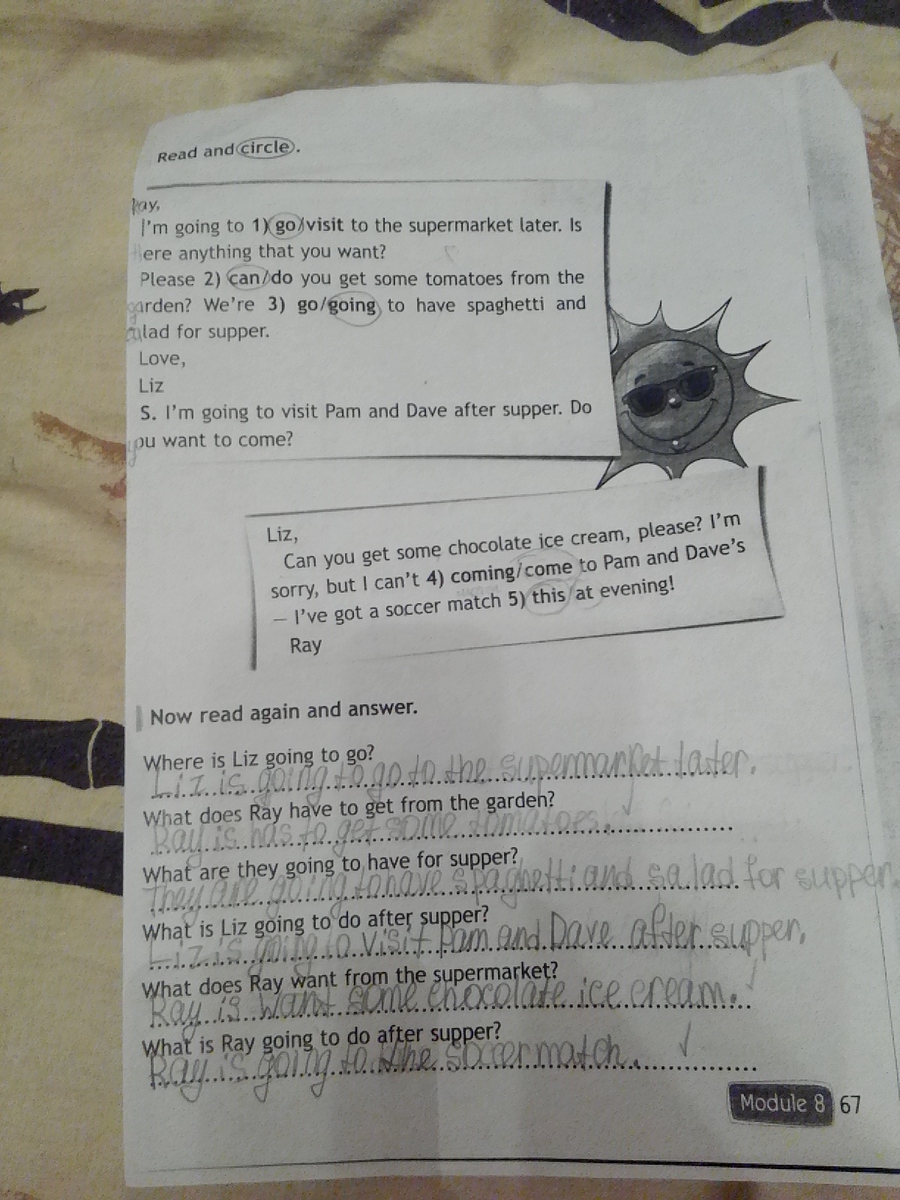 Read and circle.
Ray,
I'm going to 1) go/visit to the supermarket later. Is
there anything that you want?
Please 2) can/do you get some tomatoes from the
garden? We're 3) go/going to have spaghetti and
salad for supper.
Love,
Liz
S. I'm going to visit Pam and Dave after supper. Do
you want to come?
Liz,
Can you get some chocolate ice cream, please? I'm
sorry, but I can't 4) coming/come to Pam and Dave's
– I've got a soccer match 5) this/at evening!
Ray
Now read again and answer.
Where is Liz going to go?
Liz is going to go to the supermarket later.
What does Ray have to get from the garden?
Ray is has to get some tomatoes.
What are they going to have for supper?
They are going to have spaghetti and salad for supper.
What is Liz going to do after supper?
Liz is going to visit Pam and Dave after supper.
What does Ray want from the supermarket?
Ray is want some chocolate ice cream.
What is Ray going to do after supper?
Ray is going to the soccer match.
Module 8 67